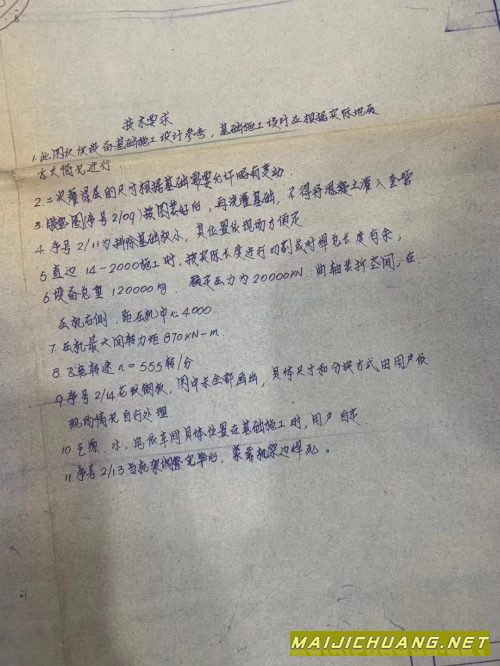 技术要求
1.此图仅供设备基础施工设计参考，基础施工设计应根据实际地质
水文情况进行
2.二次灌浆层的尺寸根据基础需要允许略有变动.
3.(序号2/09)按图装好后，再浇灌基础，不得将混凝土灌入套管
4.序号2/11为排除基础积水，其位置依现场方便定
5.直边14-2000施工时，按实际长度进行切割或对焊包长度有余，
6.设备总重120000kg. 额定压力为20000KN. 曲轴装拆空间，在
压机右侧.距压机中心4000.
7.压机最大回转力矩870KN-m.
8.飞轮转速n=555转/分
9.序号2/14花纹钢板，图中未全部画出，具体尺寸和分块方式.由用户依
现场情况自行处理.
10.气源.水.电依车间具体位置在基础施工时，用户自定
11.序号2/13当机架调整完毕后，紧靠机架边焊死。
MAIJICHUANG.NET